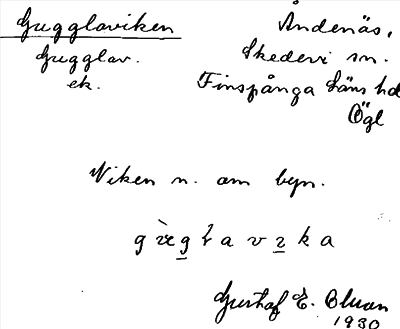 Gugglaviken
Gugglav.
ek.
Åndenäs,
Skedevi sn.
Finspånga läns hd
Ögl
Viken n. om byn.
Gustaf E.
1930